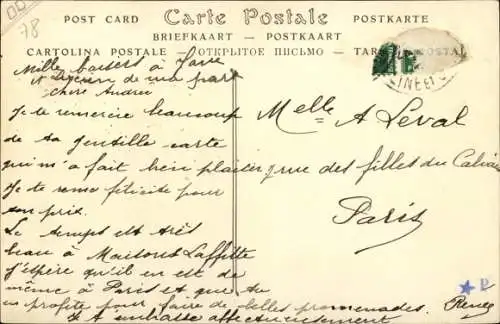 78
POST CARD Carte Postale POSTKARTE
BRIEFKAART - POSTKAART
CARTOLINA POSTALE - ОТКРЫТОЕ ПИСЬМО - TAR POSTAL
Mille baisers à
à Lucien de ma part
chère Andrée
Je te remercie beaucoup
de ta gentille carte
qui m'a fait bien plaisir,
Je te félicite pour
ton prix.
Le temps est très
beau à Maisons Laffitte
J'espère qu'il en est de
même à Paris et que tu
en profite pour faire de belles promenades.
Je t'embrasse affectueusement
Renée
Melle A Leval
rue des filles du Calvaire
Paris